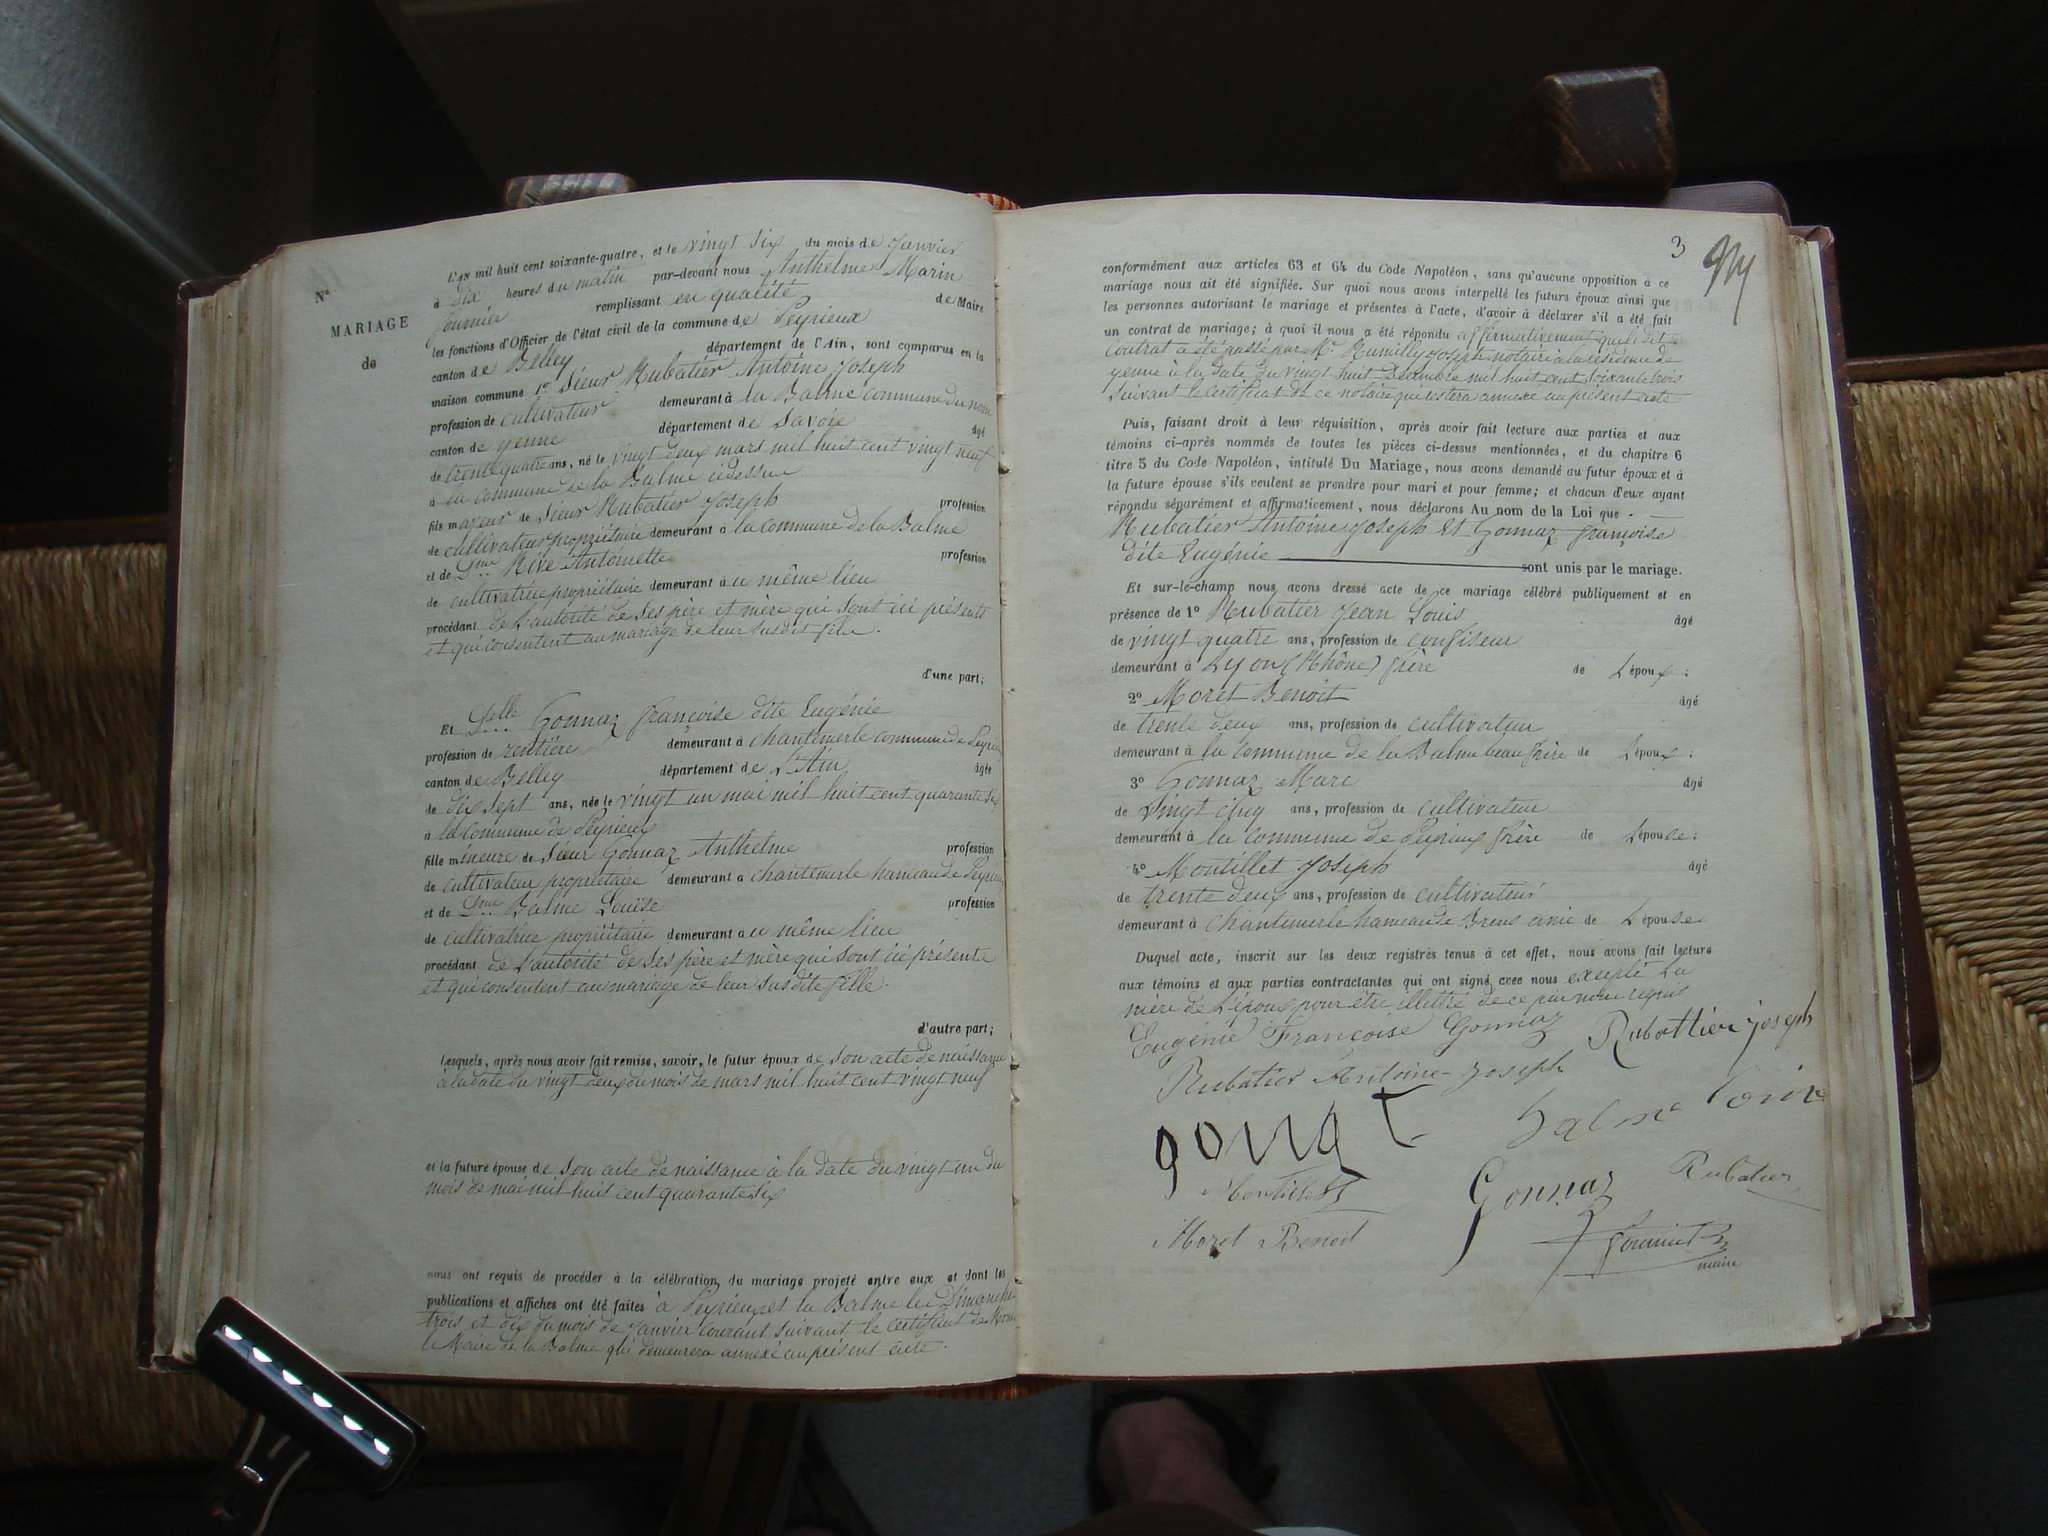 L'an mil huit cent soixante-quatre, et le vingt six du mois de Janvier
à dix heures du matin par-devant nous Anthelme Marin
fournier remplissant en qualité de Maire
les fonctions d'Officier de l'état civil de la commune de Peyrieux
canton de Belley département de l'Ain, sont comparus en la
maison commune 1º Sieur Rubatier Antoine Joseph
profession de cultivateur demeurant à la Balme commune du nom
canton de yenne département de Savoie âgé
de trente quatre ans, né le vingt deux mars mil huit cent vingt neuf
à la commune de la Balme cidessus
fils majeur de Sieur Rubatier Joseph profession
de cultivateur propriétaire demeurant à la commune de la Balme
et de Dme Rive Antoinette profession
de cultivatrice propriétaire demeurant au même lieu
procédant de L'autorité de ses père et mère qui sont ici présents
et qui consentent au mariage de leur susdit fils.
d'une part;
Et Delle Gonnaz françoise dite Eugénie
profession de rentière demeurant à chantemerle commune de Peyrieux
canton de Belley département de L'Ain âgée
de dix sept ans, née le vingt un mai mil huit cent quarante six
à la commune de Peyrieux
fille mineure de Sieur Gonnaz Anthelme profession
de cultivateur propriétaire demeurant à chantemerle hameau de Peyrieux
et de Dme Balme Louise profession
de cultivatrice propriétaire demeurant au même lieu
procédant de L'autorité de ses père et mère qui sont ici présents
et qui consentent au mariage de leur susdite fille.
d'autre part;
Lesquels, après nous avoir fait remise, savoir, le futur époux de son acte de naissance
à la date du vingt deux du mois de mars mil huit cent vingt neuf
et la future épouse de son acte de naissance à la date du vingt un du
mois de mai mil huit cent quarante six
nous ont requis de procéder à la célébration du mariage projeté entre eux et dont les
publications et affiches ont été faites à Peyrieux et la Balme les Dimanches
trois et dix du mois de Janvier courant suivant le certificat de
le Maire de la Balme qui demeurera annexé au présent acte.
Nº
MARIAGE
de
3
conformément aux articles 63 et 64 du Code Napoléon, sans qu'aucune opposition à ce
mariage nous ait été signifiée. Sur quoi nous avons interpellé les futurs époux ainsi que
les personnes autorisant le mariage et présentes à l'acte, d'avoir à déclarer s'il a été fait
un contrat de mariage; à quoi il nous a été répondu affirmativement que le dit
contrat a été passé par Me Rumilly Joseph notaire à la résidence de
yenne à la date du vingt huit Décembre mil huit cent soixante trois
suivant le certificat de ce notaire que restera annexé au présent acte
Puis, faisant droit à leur réquisition, après avoir fait lecture aux parties et aux
témoins ci-après nommés de toutes les pièces ci-dessus mentionnées, et du chapitre 6
titre 5 du Code Napoléon, intitulé Du Mariage, nous avons demandé au futur époux et à
la future épouse s'ils veulent se prendre pour mari et pour femme; et chacun d'eux ayant
répondu séparément et affirmativement, nous déclarons Au nom de la Loi que
Rubatier Antoine Joseph et Gonnaz françoise
dite Eugénie sont unis par le mariage.
Et sur-le-champ nous avons dressé acte de ce mariage célébré publiquement et en
présence de 1º Rubatier Jean Louis âgé
de vingt quatre ans, profession de confiseur
demeurant à Lyon (Rhône) frère de L'époux;
2º Moret Benoit âgé
de trente deux ans, profession de cultivateur
demeurant à la commune de la Balme beau frère de L'époux;
3º Gonnaz Marc âgé
de Vingt cinq ans, profession de cultivateur
demeurant à la commune de Peyrieux frère de L'épouse;
4º Montillet Joseph âgé
de trente deux ans, profession de cultivateur
demeurant à chantemerle hameau de Brens amie de L'épouse
Duquel acte, inscrit sur les deux registrés tenus à cet effet, nous avons fait lecture
aux témoins et aux parties contractantes qui ont signé avec nous excepté La
mère de L'époux pour être illettré de ce par nous requis
Eugénie Françoise Gonnaz Rubattier joseph
Rubatier Antoine Joseph
gonna balme louise
Montillet Gonnaz Rubatier
Moret Benoit fournier
maire